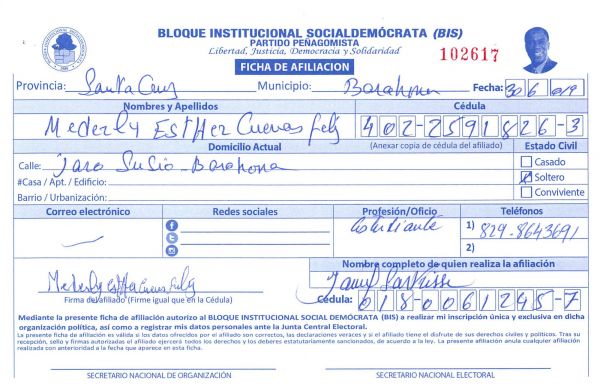 BLOQUE INSTITUCIONAL SOCIALDEMÓCRATA (BIS)
PARTIDO PEÑAGOMISTA
Libertad, Justicia, Democracia y Solidaridad
102617
FICHA DE AFILIACION
Provincia: Santa Cruz Municipio: Barahona Fecha: 30 6 019
Nombres y Apellidos Cédula
Mederly Esther Cuevas Feliz 402-2591826-3
Domicilio Actual (Anexar copia de cédula del afiliado) Estado Civil
Calle: Jaro Susio - Barahona Casado
#Casa / Apt. / Edificio: Soltero
Barrio / Urbanización: Conviviente
Correo electrónico Redes sociales Profesión/Oficio Teléfonos
Estudiante 1) 829-8643691
2)
Nombre completo de quien realiza la afiliación
Mederly Esther Cuevas Feliz
Firma del afiliado (Firme igual que en la Cédula) Cédula: 018-0061245-7
Mediante la presente ficha de afiliación autorizo al BLOQUE INSTITUCIONAL SOCIAL DEMÓCRATA (BIS) a realizar mi inscripción única y exclusiva en dicha
organización política, así como a registrar mis datos personales ante la Junta Central Electoral.
La presente ficha de afiliación es válida si los datos ofrecidos por el afiliado son correctos, las declaraciones veraces y si el afiliado tiene el disfrute de sus derechos civiles y políticos. Tras su
recepción, sello y firmas autorizadas el afiliado ejercerá todos los derechos y los deberes estatutariamente sancionados, de acuerdo a la ley. La presente afiliación anula cualquier afiliación
realizada con anterioridad a la fecha que aparece en esta ficha.
SECRETARIO NACIONAL DE ORGANIZACIÓN SECRETARIO NACIONAL ELECTORAL